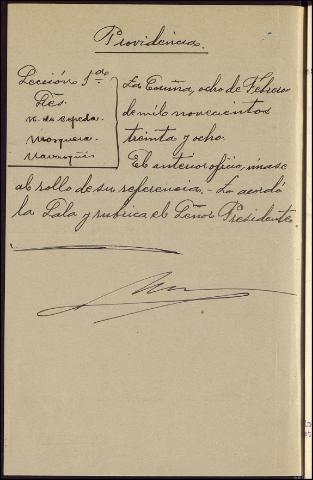 Providencia.
Sección 1ª
Sres.
V. de Cepeda
Mosquera
Navarqüés
La Coruña, ocho de Febrero
de mil novecientos
treinta y ocho.
El anterior oficio, únase
al rollo de su referencia.- Lo acordó
la Sala y rubrica el Señor Presidente